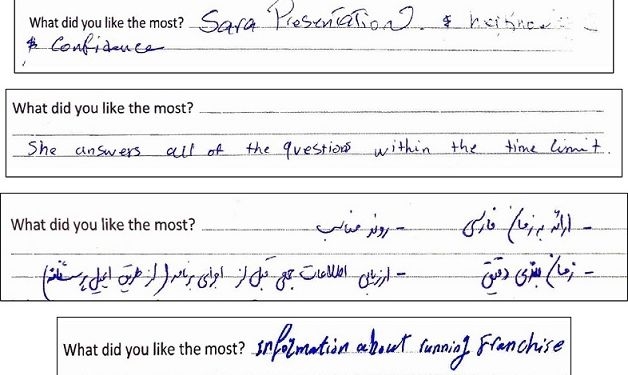 What did you like the most? Sara Presentation. &
& Confidence
What did you like the most?
She answers all of the questions within the time limit.
What did you like the most? - ارائه به زمان فارسی - روند مناسب
- زمان بندی دقیق - ارزیابی اطلاعات جمعی قبل از اجرای برنامه (از طریق ایمیل پرسشنامه)
What did you like the most? information about running franchise